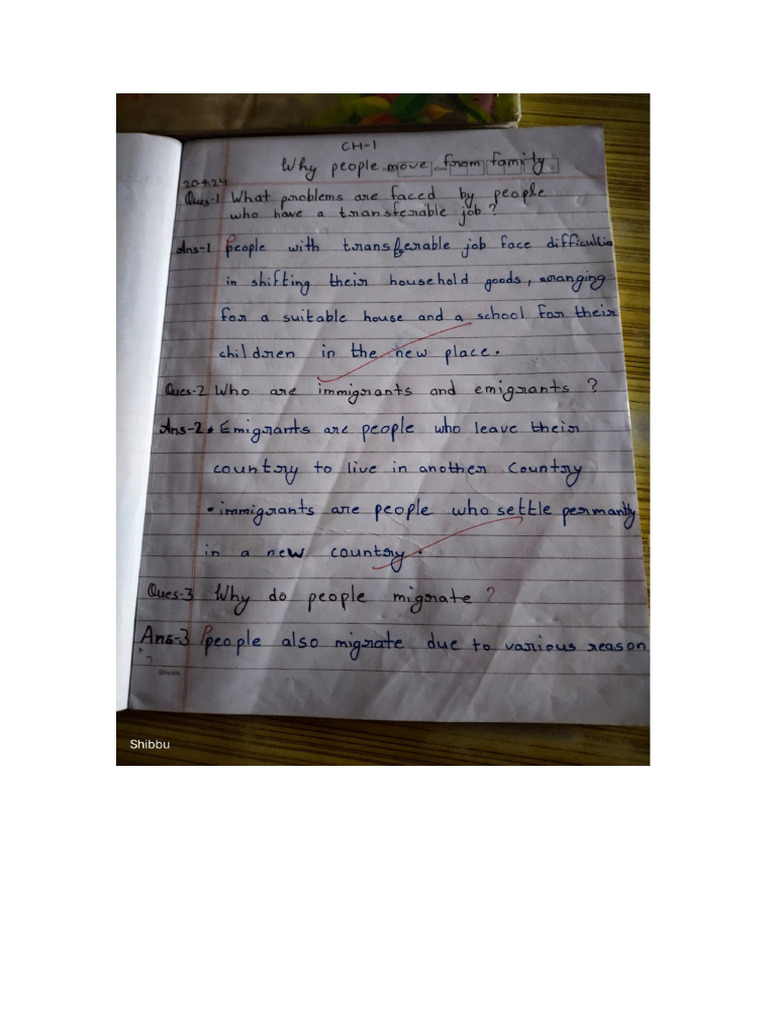 CH-1
Why people move from family
20424
Ques-1 What problems are faced by people
who have a transferable job ?
Ans-1 People with transferable job face difficultie
in shifting their household goods, arranging
for a suitable house and a school for their
children in the new place.
Ques-2 Who are immigrants and emigrants ?
Ans-2 • Emigrants are people who leave their
country to live in another Country
• immigrants are people who settle permantly
in a new country.
Ques-3 Why do people migrate ?
Ans-3 People also migrate due to various reason
Shibbu